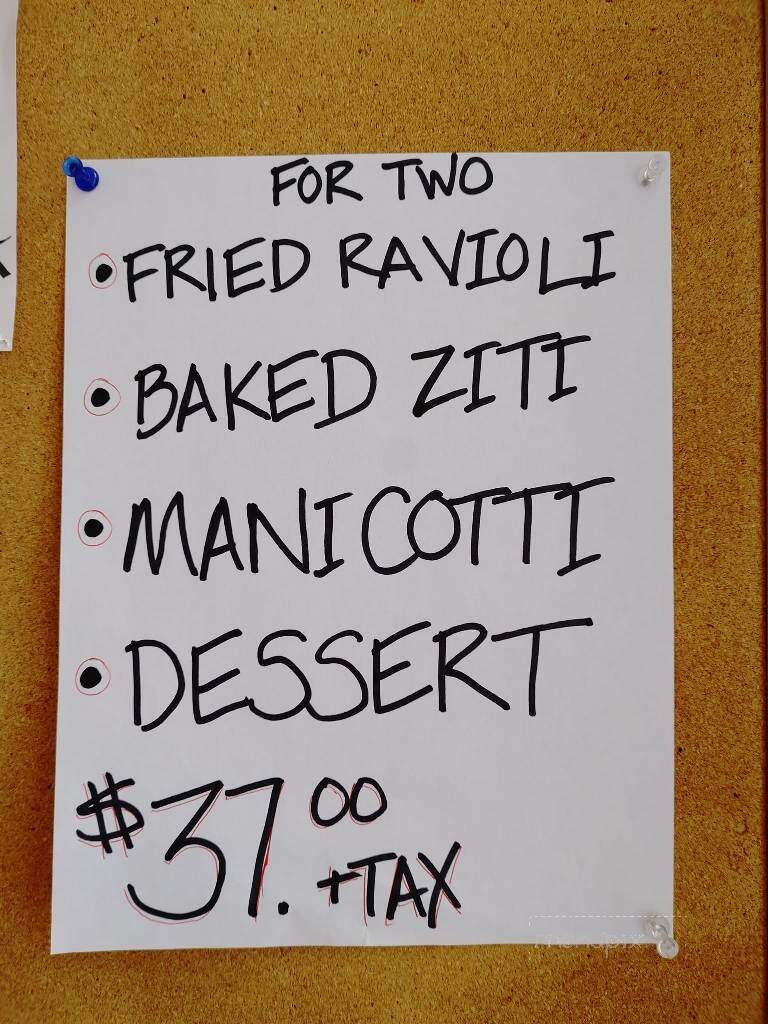 FOR TWO
• FRIED RAVIOLI
• BAKED ZITI
• MANICOTTI
• DESSERT
$37.00
+TAX